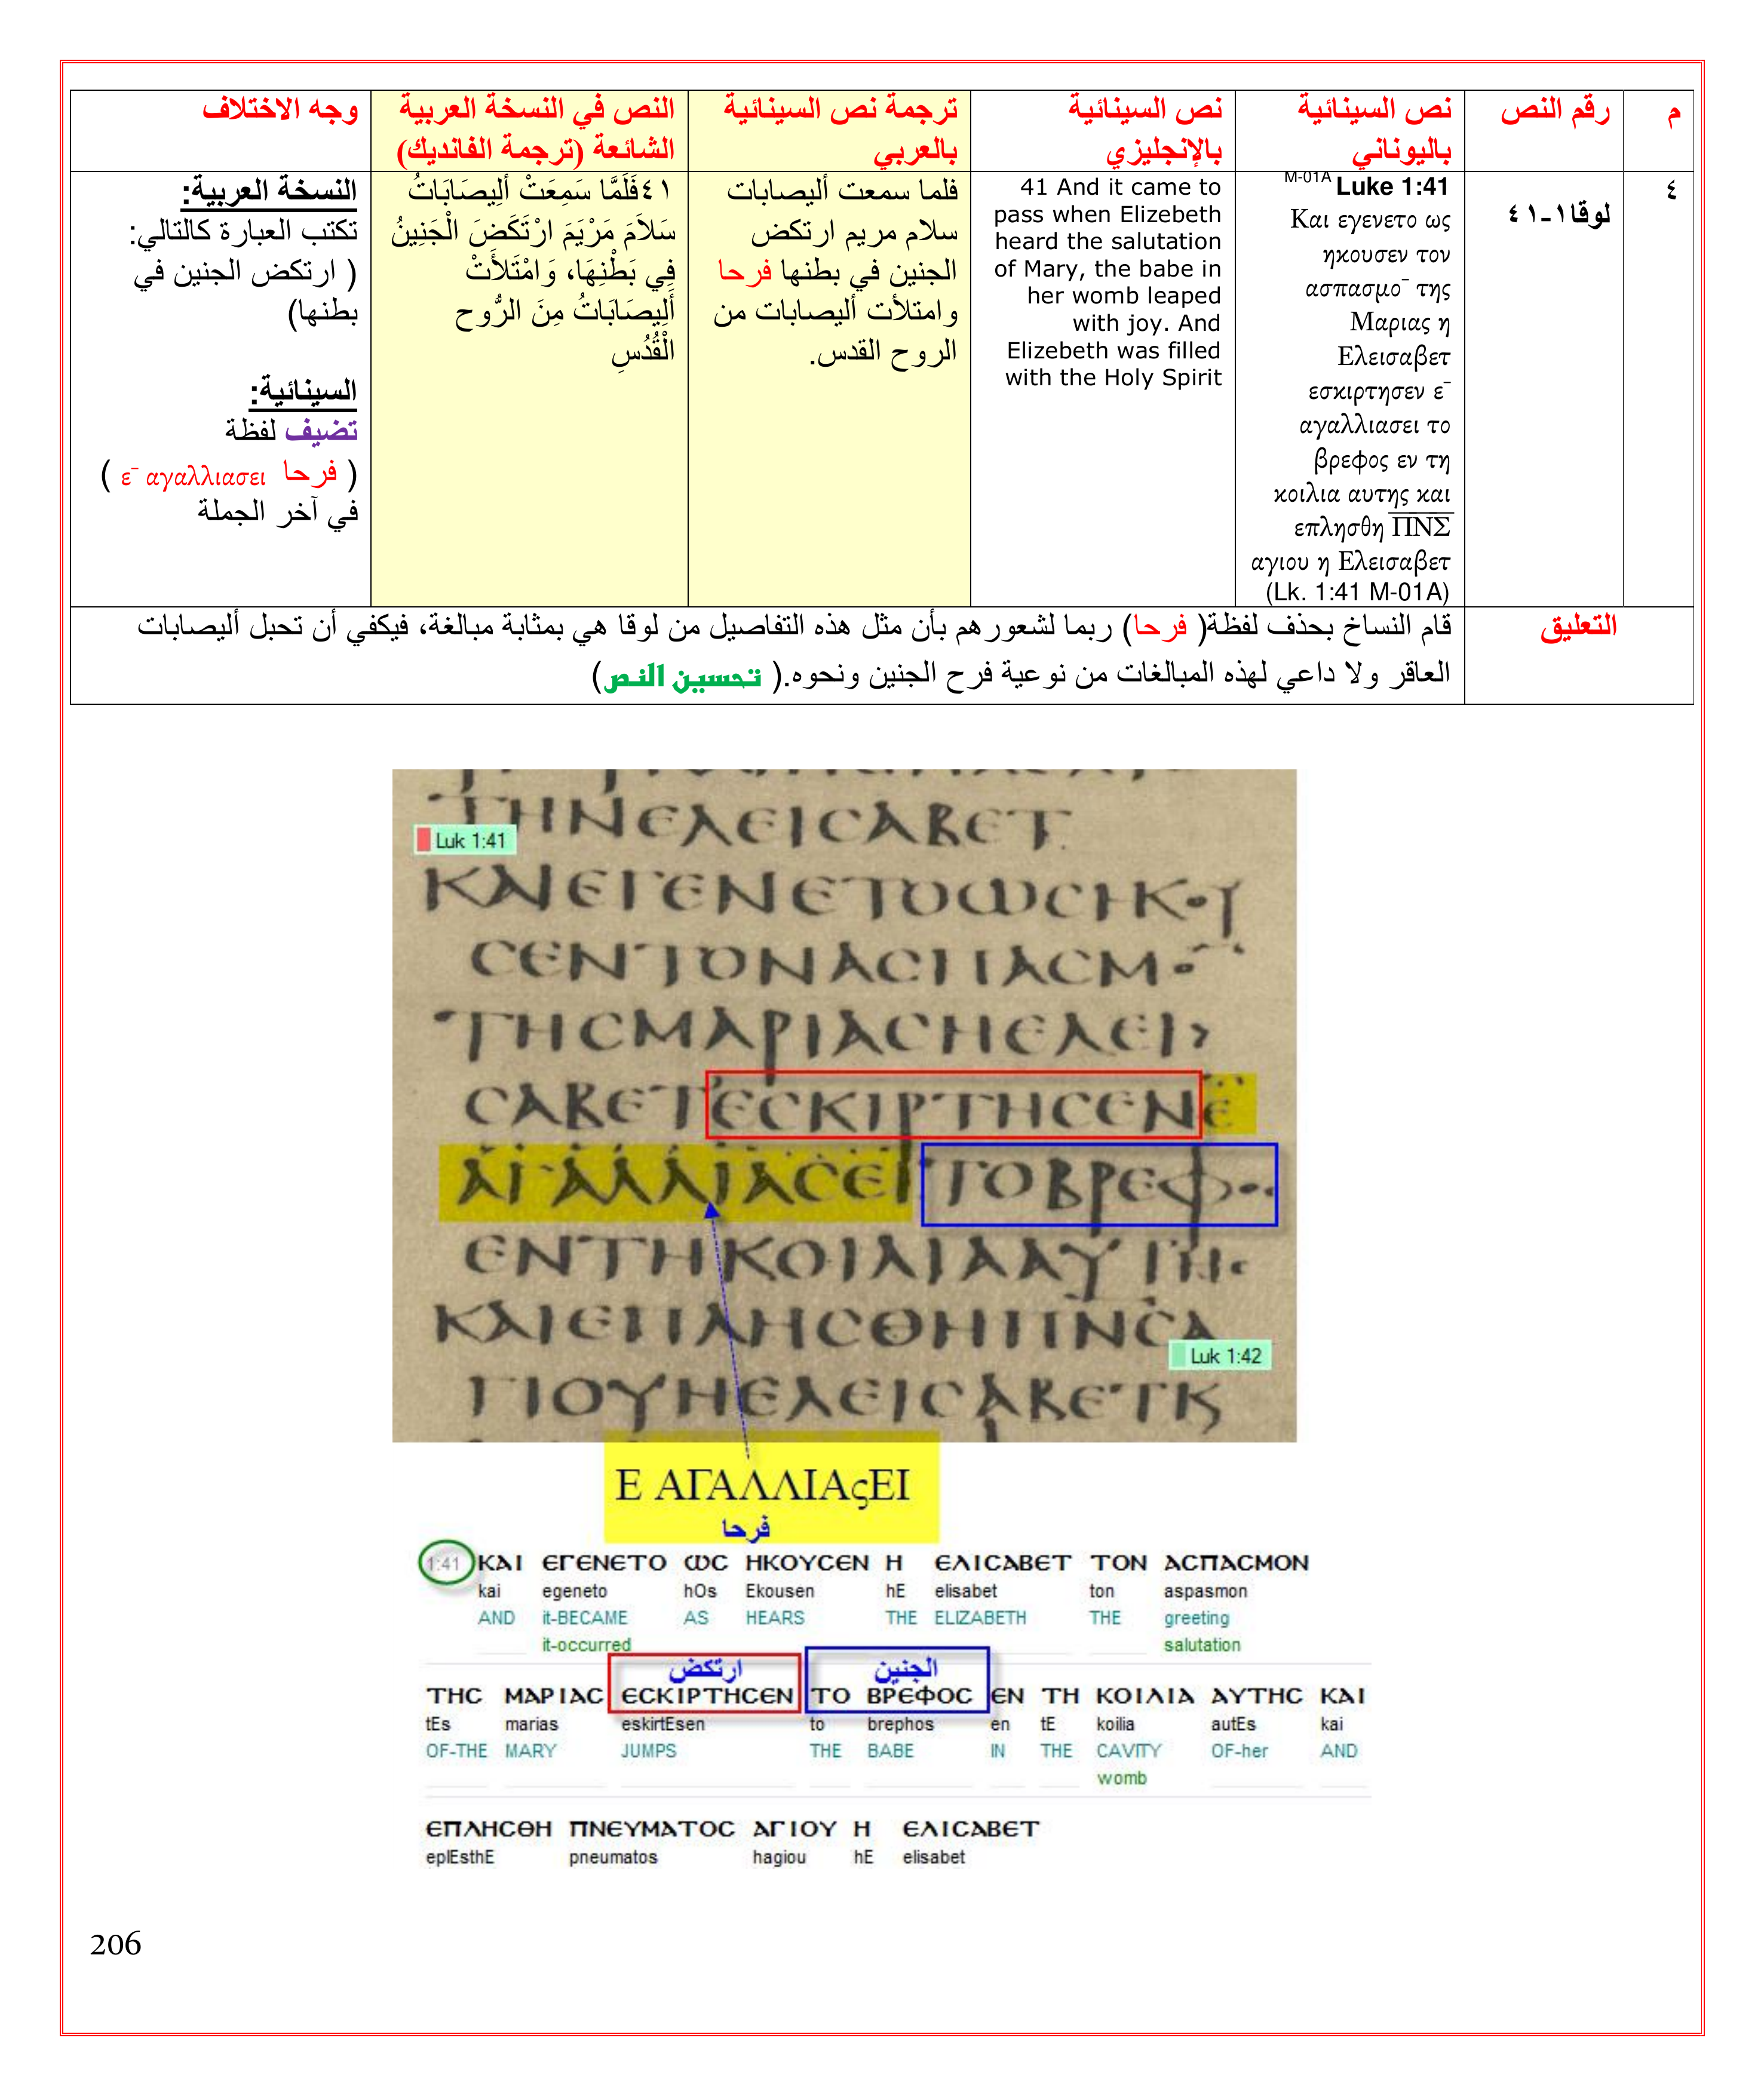 م
رقم النص
نص السينائية
باليوناني
نص السينائية
بالإنجليزي
ترجمة نص السينائية
بالعربي
النص في النسخة العربية
الشائعة (ترجمة الفانديك)
وجه الاختلاف
٤
لوقا١-٤١
M-01A Luke 1:41
Και εγενετο ως
ηκουσεν τον
ασπασμο¯ της
Μαριας η
Ελεισαβετ
εσκιρτησεν ε¯
αγαλλιασει το
βρεφος εν τη
κοιλια αυτης και
επλησθη ΠΝΣ
αγιου η Ελεισαβετ
(Lk. 1:41 M-01A)
41 And it came to
pass when Elizebeth
heard the salutation
of Mary, the babe in
her womb leaped
with joy. And
Elizebeth was filled
with the Holy Spirit
فلما سمعت أليصابات
سلام مريم ارتكض
الجنين في بطنها فرحا
وامتلأت أليصابات من
الروح القدس.
٤١فَلَمَّا سَمِعَتْ أَلِيصَابَاتُ
سَلاَمَ مَرْيَمَ ارْتَكَضَ الْجَنِينُ
فِي بَطْنِهَا، وَامْتَلأَتْ
أَلِيصَابَاتُ مِنَ الرُّوحِ
الْقُدُسِ
النسخة العربية:
تكتب العبارة كالتالي:
( ارتكض الجنين في
بطنها)
السينائية:
تضيف لفظة
( فرحا ε¯ αγαλλιασει )
في آخر الجملة
التعليق
قام النساخ بحذف لفظة( فرحا) ربما لشعورهم بأن مثل هذه التفاصيل من لوقا هي بمثابة مبالغة، فيكفي أن تحبل أليصابات
العاقر ولا داعي لهذه المبالغات من نوعية فرح الجنين ونحوه.( تحسين النص)
ΤΗΝΕΛΕΙϹΑΒΕΤ
Luk 1:41
ΚΑΙΕΓΕΝΕΤΟΩϹΗΚΟΥ
ϹΕΝΤΟΝΑϹΠΑϹΜΟ¯
ΤΗϹΜΑΡΙΑϹΗΕΛΕΙ>
ϹΑΒΕΤΕϹΚΙΡΤΗϹΕΝΕ¯
ΑΓΑΛΛΙΑϹΕΙΤΟΒΡΕΦΟϹ
ΕΝΤΗΚΟΙΛΙΑΑΥΤΗϹ
ΚΑΙΕΠΛΗϹΘΗΠΝϹΑ
Luk 1:42
ΓΙΟΥΗΕΛΕΙϹΑΒΕΤΚ
Ε ΑΓΑΛΛΙΑςΕΙ
فرحا
1:41 ΚΑΙ ΕΓΕΝΕΤΟ ΩϹ ΗΚΟΥϹΕΝ Η ΕΛΙϹΑΒΕΤ ΤΟΝ ΑϹΠΑϹΜΟΝ
kai egeneto hOs Ekousen hE elisabet ton aspasmon
AND it-BECAME AS HEARS THE ELIZABETH THE greeting
it-occurred salutation
ارتكض الجنين
ΤΗϹ ΜΑΡΙΑϹ ΕϹΚΙΡΤΗϹΕΝ ΤΟ ΒΡΕΦΟϹ ΕΝ ΤΗ ΚΟΙΛΙΑ ΑΥΤΗϹ ΚΑΙ
tEs marias eskirtEsen to brephos en tE koilia autEs kai
OF-THE MARY JUMPS THE BABE IN THE CAVITY OF-her AND
womb
ΕΠΛΗϹΘΗ ΠΝΕΥΜΑΤΟϹ ΑΓΙΟΥ Η ΕΛΙϹΑΒΕΤ
eplEsthE pneumatos hagiou hE elisabet
206